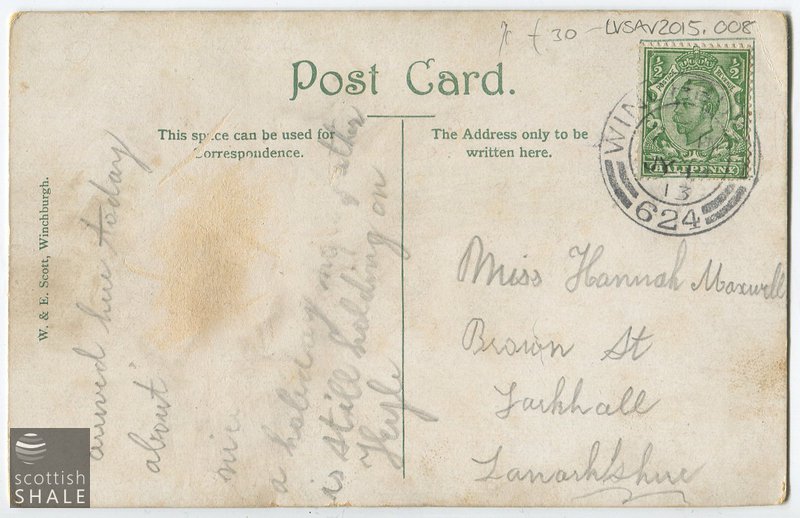 £30 - LVSAV2015.008
Post Card.
This space can be used for
Correspondence.
The Address only to be
written here.
W. & E. Scott, Winchburgh.
1/2 1/2
HALFPENNY
WINCH
JY
13
624
Miss Hannah Maxwell
Brown St
Larkhall
Lanarkshire
arrived here today
about
nice
a holiday my father
is still holding on
scottish
SHALE